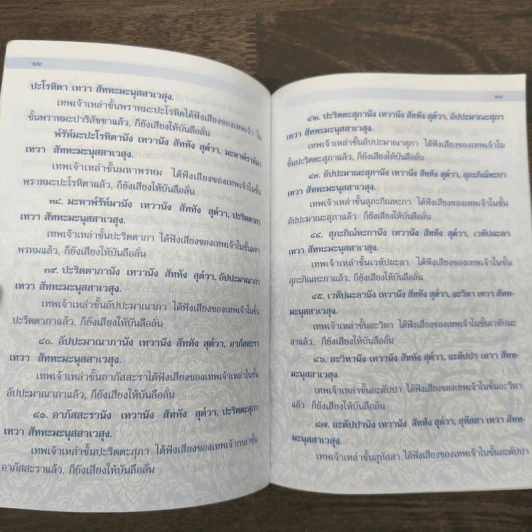 ๒๒
ปะโรหิตา เทวา สัททะมะนุสสาเวสุง.
เทพเจ้าเหล่าชั้นพราหมะปะโรหิตาได้ฟังเสียงของเทพเจ้า
ชั้นพราหมะปาริสัชชาแล้ว, ก็ยังเสียงให้บันลือลั่น
พ๎รัห๎มะปะโรหิตานัง เทวานัง สัททัง สุต๎วา, มะหาพ๎รัห๎มา
เทวา สัททะมะนุสสาเวสุง.
เทพเจ้าเหล่าชั้นมหาพรหม ได้ฟังเสียงของเทพเจ้าในชั้น
พราหมะปะโรหิตาแล้ว, ก็ยังเสียงให้บันลือลั่น
๓๘. มะหาพ๎รัห๎มานัง เทวานัง สัททัง สุต๎วา, ปะริตตาภา
เทวา สัททะมะนุสสาเวสุง.
เทพเจ้าเหล่าชั้นปะริตตาภา ได้ฟังเสียงของเทพเจ้าในชั้นมหา
พรหมแล้ว, ก็ยังเสียงให้บันลือลั่น
๓๙. ปะริตตาภานัง เทวานัง สัททัง สุต๎วา, อัปปะมาณาภา
เทวา สัททะมะนุสสาเวสุง.
เทพเจ้าเหล่าชั้นอัปปะมาณาภา ได้ฟังเสียงของเทพเจ้าในชั้น
ปะริตตาภาแล้ว, ก็ยังเสียงให้บันลือลั่น
๔๐. อัปปะมาณาภานัง เทวานัง สัททัง สุต๎วา, อาภัสสะรา
เทวา สัททะมะนุสสาเวสุง.
เทพเจ้าเหล่าชั้นอาภัสสะราได้ฟังเสียงของเทพเจ้าเหล่าในชั้น
อัปปะมาณาภาแล้ว, ก็ยังเสียงให้บันลือลั่น
๔๑. อาภัสสะรานัง เทวานัง สัททัง สุต๎วา, ปะริตตะสุภา
เทวา สัททะมะนุสสาเวสุง.
เทพเจ้าเหล่าชั้นปะริตตะสุภา ได้ฟังเสียงของเทพเจ้าเหล่าชั้น
อาภัสสะราแล้ว, ก็ยังเสียงให้บันลือลั่น
๒๓
๔๒. ปะริตตะสุภานัง เทวานัง สัททัง สุต๎วา, อัปปะมาณะสุภา
เทวา สัททะมะนุสสาเวสุง.
เทพเจ้าเหล่าชั้นอัปปะมาณะสุภา ได้ฟังเสียงของเทพเจ้าใน
ชั้นปะริตตะสุภาแล้ว, ก็ยังเสียงให้บันลือลั่น
๔๓. อัปปะมาณะสุภานัง เทวานัง สัททัง สุต๎วา, สุภะกิณห๎ะกา
เทวา สัททะมะนุสสาเวสุง.
เทพเจ้าเหล่าชั้นสุภะกิณหะกา ได้ฟังเสียงของเทพเจ้าในชั้น
อัปปะมาณะสุภาแล้ว ก็ยังเสียงให้บันลือลั่น
๔๔. สุภะกิณห๎ะกานัง เทวานัง สัททัง สุต๎วา, เวหัปผะลา
เทวา สัททะมะนุสสาเวสุง.
เทพเจ้าเหล่าชั้นเวหัปผะลา ได้ฟังเสียงของเทพเจ้าในชั้น
สุภะกิณหะกาแล้ว, ก็ยังเสียงให้บันลือลั่น
๔๕. เวหัปผะลานัง เทวานัง สัททัง สุต๎วา, อะวิหา เทวา สัททะ-
มะนุสสาเวสุง.
เทพเจ้าเหล่าชั้นอะวิหา ได้ฟังเสียงของเทพเจ้าในชั้นเวหัปผะ
ลาแล้ว, ก็ยังเสียงให้บันลือลั่น
๔๖. อะวิหานัง เทวานัง สัททัง สุต๎วา, อะตัปปา เทวา สัททะ-
มะนุสสาเวสุง.
เทพเจ้าเหล่าชั้นอะตัปปา ได้ฟังเสียงของเทพเจ้าในชั้นอะวิหา
แล้ว ก็ยังเสียงให้บันลือลั่น
๔๗. อะตัปปานัง เทวานัง สัททัง สุต๎วา, สุทัสสา เทวา
สัททะมะนุสสาเวสุง.
เทพเจ้าเหล่าชั้นสุทัสสา ได้ฟังเสียงของเทพเจ้าในชั้นอะตัปปา